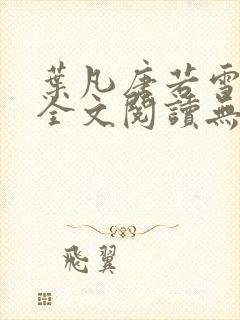 葉凡唐若雪
全文閱讀無
飛翼